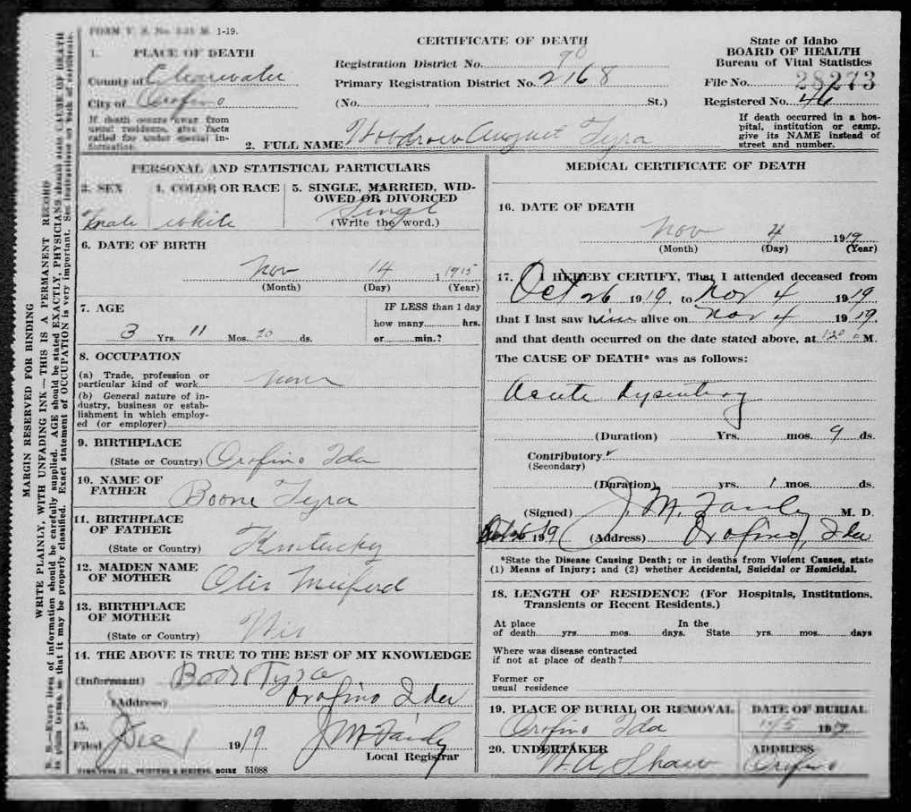 FORM V. S. No. 1-19.
CERTIFICATE OF DEATH
State of Idaho
BOARD OF HEALTH
Bureau of Vital Statistics
1. PLACE OF DEATH
Registration District No. 90
County of Clearwater
Primary Registration District No. 2168
File No. 28273
City of Orofino
(No. , St.)
Registered No. 46
If death occurs away from
usual residence, give facts
called for under special in-
formation.
If death occurred in a hos-
pital, institution or camp,
give its NAME instead of
street and number.
2. FULL NAME Woodrow August Tyra
MARGIN RESERVED FOR BINDING
WRITE PLAINLY, WITH UNFADING INK — THIS IS A PERMANENT RECORD
PERSONAL AND STATISTICAL PARTICULARS
3. SEX
4. COLOR OR RACE
5. SINGLE, MARRIED, WID-
OWED OR DIVORCED
male
white
Single
(Write the word.)
6. DATE OF BIRTH
Nov 14 1915
(Month) (Day) (Year)
7. AGE
IF LESS than 1 day
how many hrs.
3 Yrs. 11 Mos. 20 ds.
or min.?
8. OCCUPATION
(a) Trade, profession or
particular kind of work none
(b) General nature of in-
dustry, business or estab-
lishment in which employ-
ed (or employer)
9. BIRTHPLACE
(State or Country) Orofino Ida
10. NAME OF
FATHER
Boone Tyra
11. BIRTHPLACE
OF FATHER
(State or Country) Kentucky
12. MAIDEN NAME
OF MOTHER
13. BIRTHPLACE
OF MOTHER
(State or Country) Wis
14. THE ABOVE IS TRUE TO THE BEST OF MY KNOWLEDGE
(Informant) Tyra
(Address) Orofino Ida
15.
Filed Dec 1 1919
J M Fairly
Local Registrar
BOISE 51088
MEDICAL CERTIFICATE OF DEATH
16. DATE OF DEATH
Nov 4 1919
(Month) (Day) (Year)
17. I HEREBY CERTIFY, That I attended deceased from
Oct 26 1919, to Nov 4 1919
that I last saw him alive on Nov 4 1919.
and that death occurred on the date stated above, at M.
The CAUSE OF DEATH* was as follows:
Acute dysentery
(Duration) Yrs. mos. 9 ds.
Contributory
(Secondary)
(Duration) yrs. mos. ds.
(Signed) J. M. Fairly M. D.
1919 (Address) Orofino, Ida
*State the Disease Causing Death; or in deaths from Violent Causes, state
(1) Means of Injury; and (2) whether Accidental, Suicidal or Homicidal.
18. LENGTH OF RESIDENCE (For Hospitals, Institutions,
Transients or Recent Residents.)
At place In the
of death yrs. mos. days. State yrs. mos. days
Where was disease contracted
if not at place of death?
Former or
usual residence
19. PLACE OF BURIAL OR REMOVAL
DATE OF BURIAL
Orofino Ida
11/5 1919
20. UNDERTAKER
ADDRESS
W. A Shaw
Orofino